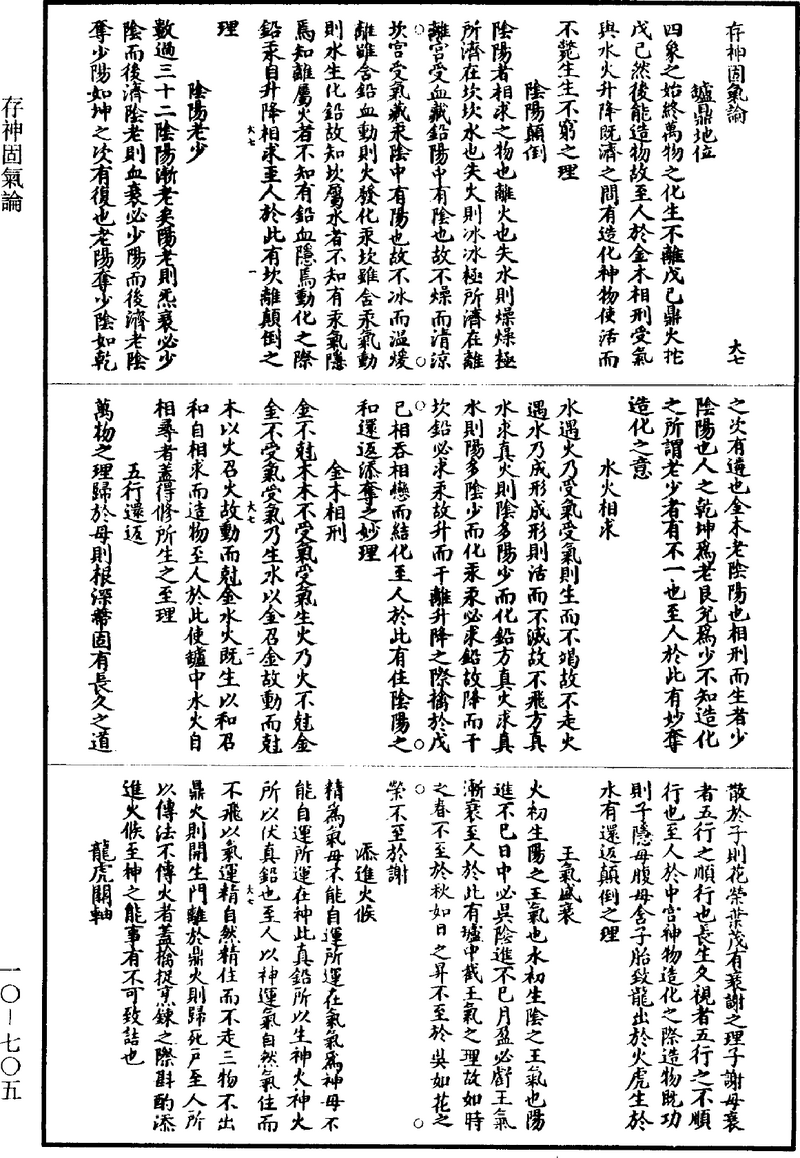 存神固氣論
一〇—七〇五
存神固氣論　大七
鑪鼎地位
四象之始終萬物之化生不離戊己鼎火拕
戊己然後能造物故至人於金木相刑受氣
與水火升降既濟之間有造化神物使活而
不斃生生不窮之理
陰陽顛倒
陰陽者相求之物也離火也失水則燥燥極
所濟在坎坎水也失火則冰冰極所濟在離
離宮受血藏鉛陽中有陰也故不燥而清涼
坎宮受氣藏汞陰中有陽也故不冰而溫煖
離雖含鉛血動則火發化汞坎雖含汞氣動
則水生化鉛故知坎屬水者不知有汞氣隱
焉知離屬火者不知有鉛血隱焉動化之際
鉛汞自升降相求至人於此有坎離顛倒之
大七　一
理
陰陽老少
數過三十二陰陽漸老矣陽老則炁衰必少
陰而後濟陰老則血衰必少陽而後濟老陰
奪少陽如坤之次有復也老陽奪少陰如乾
之次有遘也金木老陰陽也相刑而生者少
陰陽也人之乾坤為老艮兌為少不知造化
之所謂老少者有不一也至人於此有妙奪
造化之意
水火相求
水遇火乃受氣受氣則生而不竭故不走火
遇水乃成形成形則活而不滅故不飛方真
水求真火則陰多陽少而化鉛方真火求真
水則陽多陰少而化汞汞必求鉛故降而干
坎鉛必求汞故升而干離升降之際擒於戊
己相吞相戀而結化至人於此有住陰陽之
和還返添奪之妙理
金木相刑
金不尅木木不受氣受氣生火乃火不尅金
金不受氣受氣乃生水以金召金故動而尅
大七　二
木以火召火故動而尅金水火既生以和召
和自相求而造物至人於此使鑪中水火自
相尋者蓋得修所生之至理
五行還返
萬物之理歸於母則根深蔕固有長久之道
散於子則花榮葉茂有衰謝之理子謝母衰
者五行之順行也長生久視者五行之不順
行也至人於中宮神物造化之際造物既功
則子隱母腹母含子胎致龍出於火虎生於
水有還返顛倒之理
王氣盛衰
火初生陽之王氣也水初生陰之王氣也陽
進不已日中必昃陰進不已月盈必虧王氣
漸衰至人於此有壚中截王氣之理故如時
之春不至於秋如日之昇不至於昃如花之
榮不至於謝
添進火候
精為氣母不能自運所運在氣氣為神母不
能自運所運在神此真鉛所以生神火神火
所以伏真鉛也至人以神運氣自然氣住而
大七
不飛以氣運精自然精住而不走三物不出
鼎火則開生門離於鼎火則歸死戶至人所
以傳法不傳火者蓋擒捉烹鍊之際斟酌添
進火候至神之能事有不可致詰也
龍虎關軸